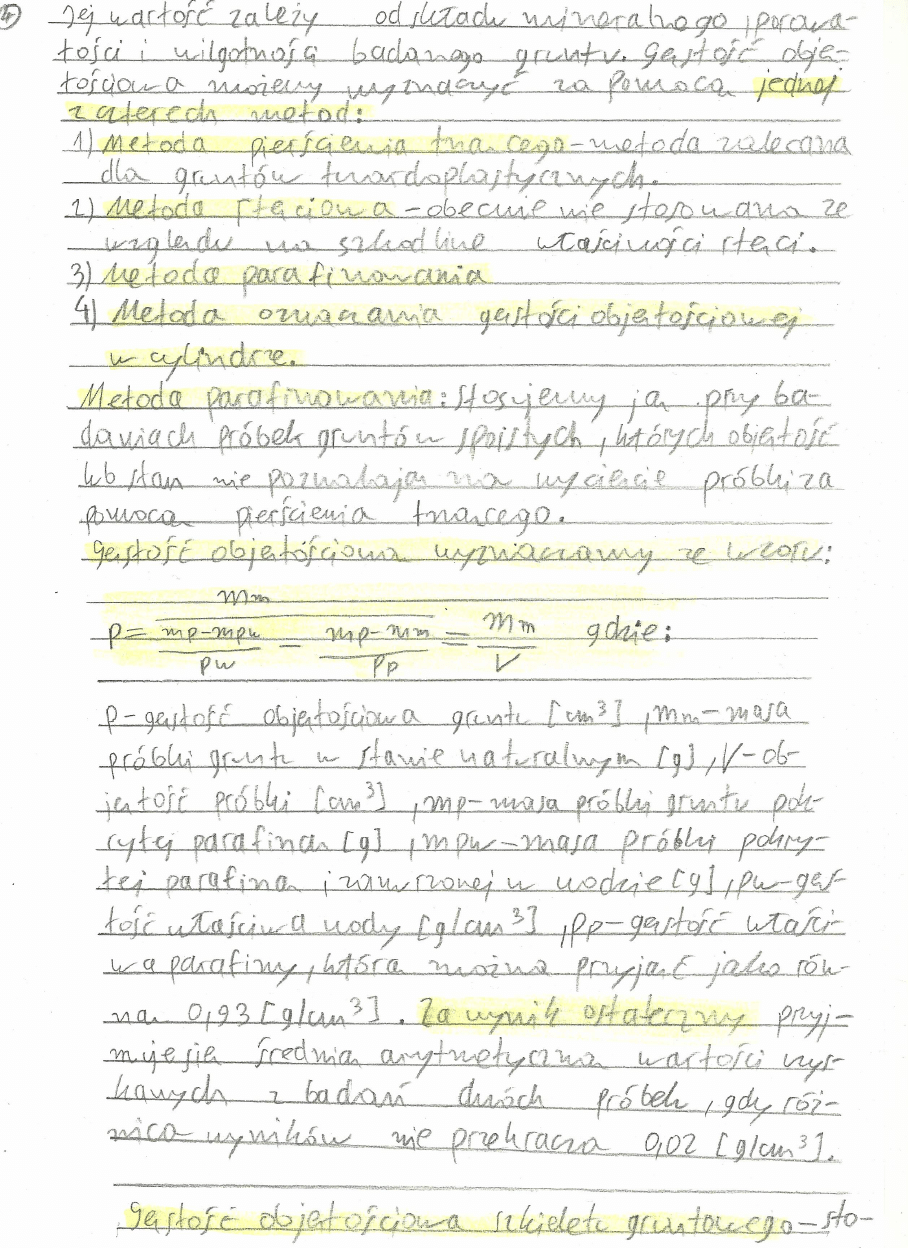 5
Jej wartość zależy od składu mineralnego, porowa-
tości i wilgotności badanego gruntu. Gęstość obję-
tościową możemy wyznaczyć za pomocą jednej
z czterech metod:
1) Metoda pierścienia tnącego - metoda zalecana
dla gruntów twardoplastycznych.
2) Metoda rtęciowa - obecnie nie stosowana ze
względu na szkodliwe właściwości rtęci.
3) Metoda parafinowania
4) Metoda oznaczania gęstości objętościowej
w cylindrze.
Metoda parafinowania: stosujemy ją przy ba-
daniach próbek gruntów spoistych, których objętość
lub stan nie pozwalają na wycięcie próbki za
pomocą pierścienia tnącego.
Gęstość objętościową wyznaczamy ze wzoru:
mm
p = mp-mpw / pw - mp-mm / pp = mm / V gdzie:
p - gęstość objętościowa gruntu [cm³], mm - masa
próbki gruntu w stanie naturalnym [g], V - ob-
jętość próbki [cm³], mp - masa próbki gruntu pok-
rytej parafiną [g], mpw - masa próbki pokry-
tej parafiną i zanurzonej w wodzie [g], pw - gęs-
tość właściwa wody [g/cm³], pp - gęstość właści-
wa parafiny, którą można przyjąć jako rów-
ną 0,93 [g/cm³]. Za wynik ostateczny przyj-
muje się średnią arytmetyczną wartości uzys-
kanych z badań dwóch próbek, gdy róż-
nica wyników nie przekracza 0,02 [g/cm³].
Gęstość objętościowa szkieletu gruntowego - sto-